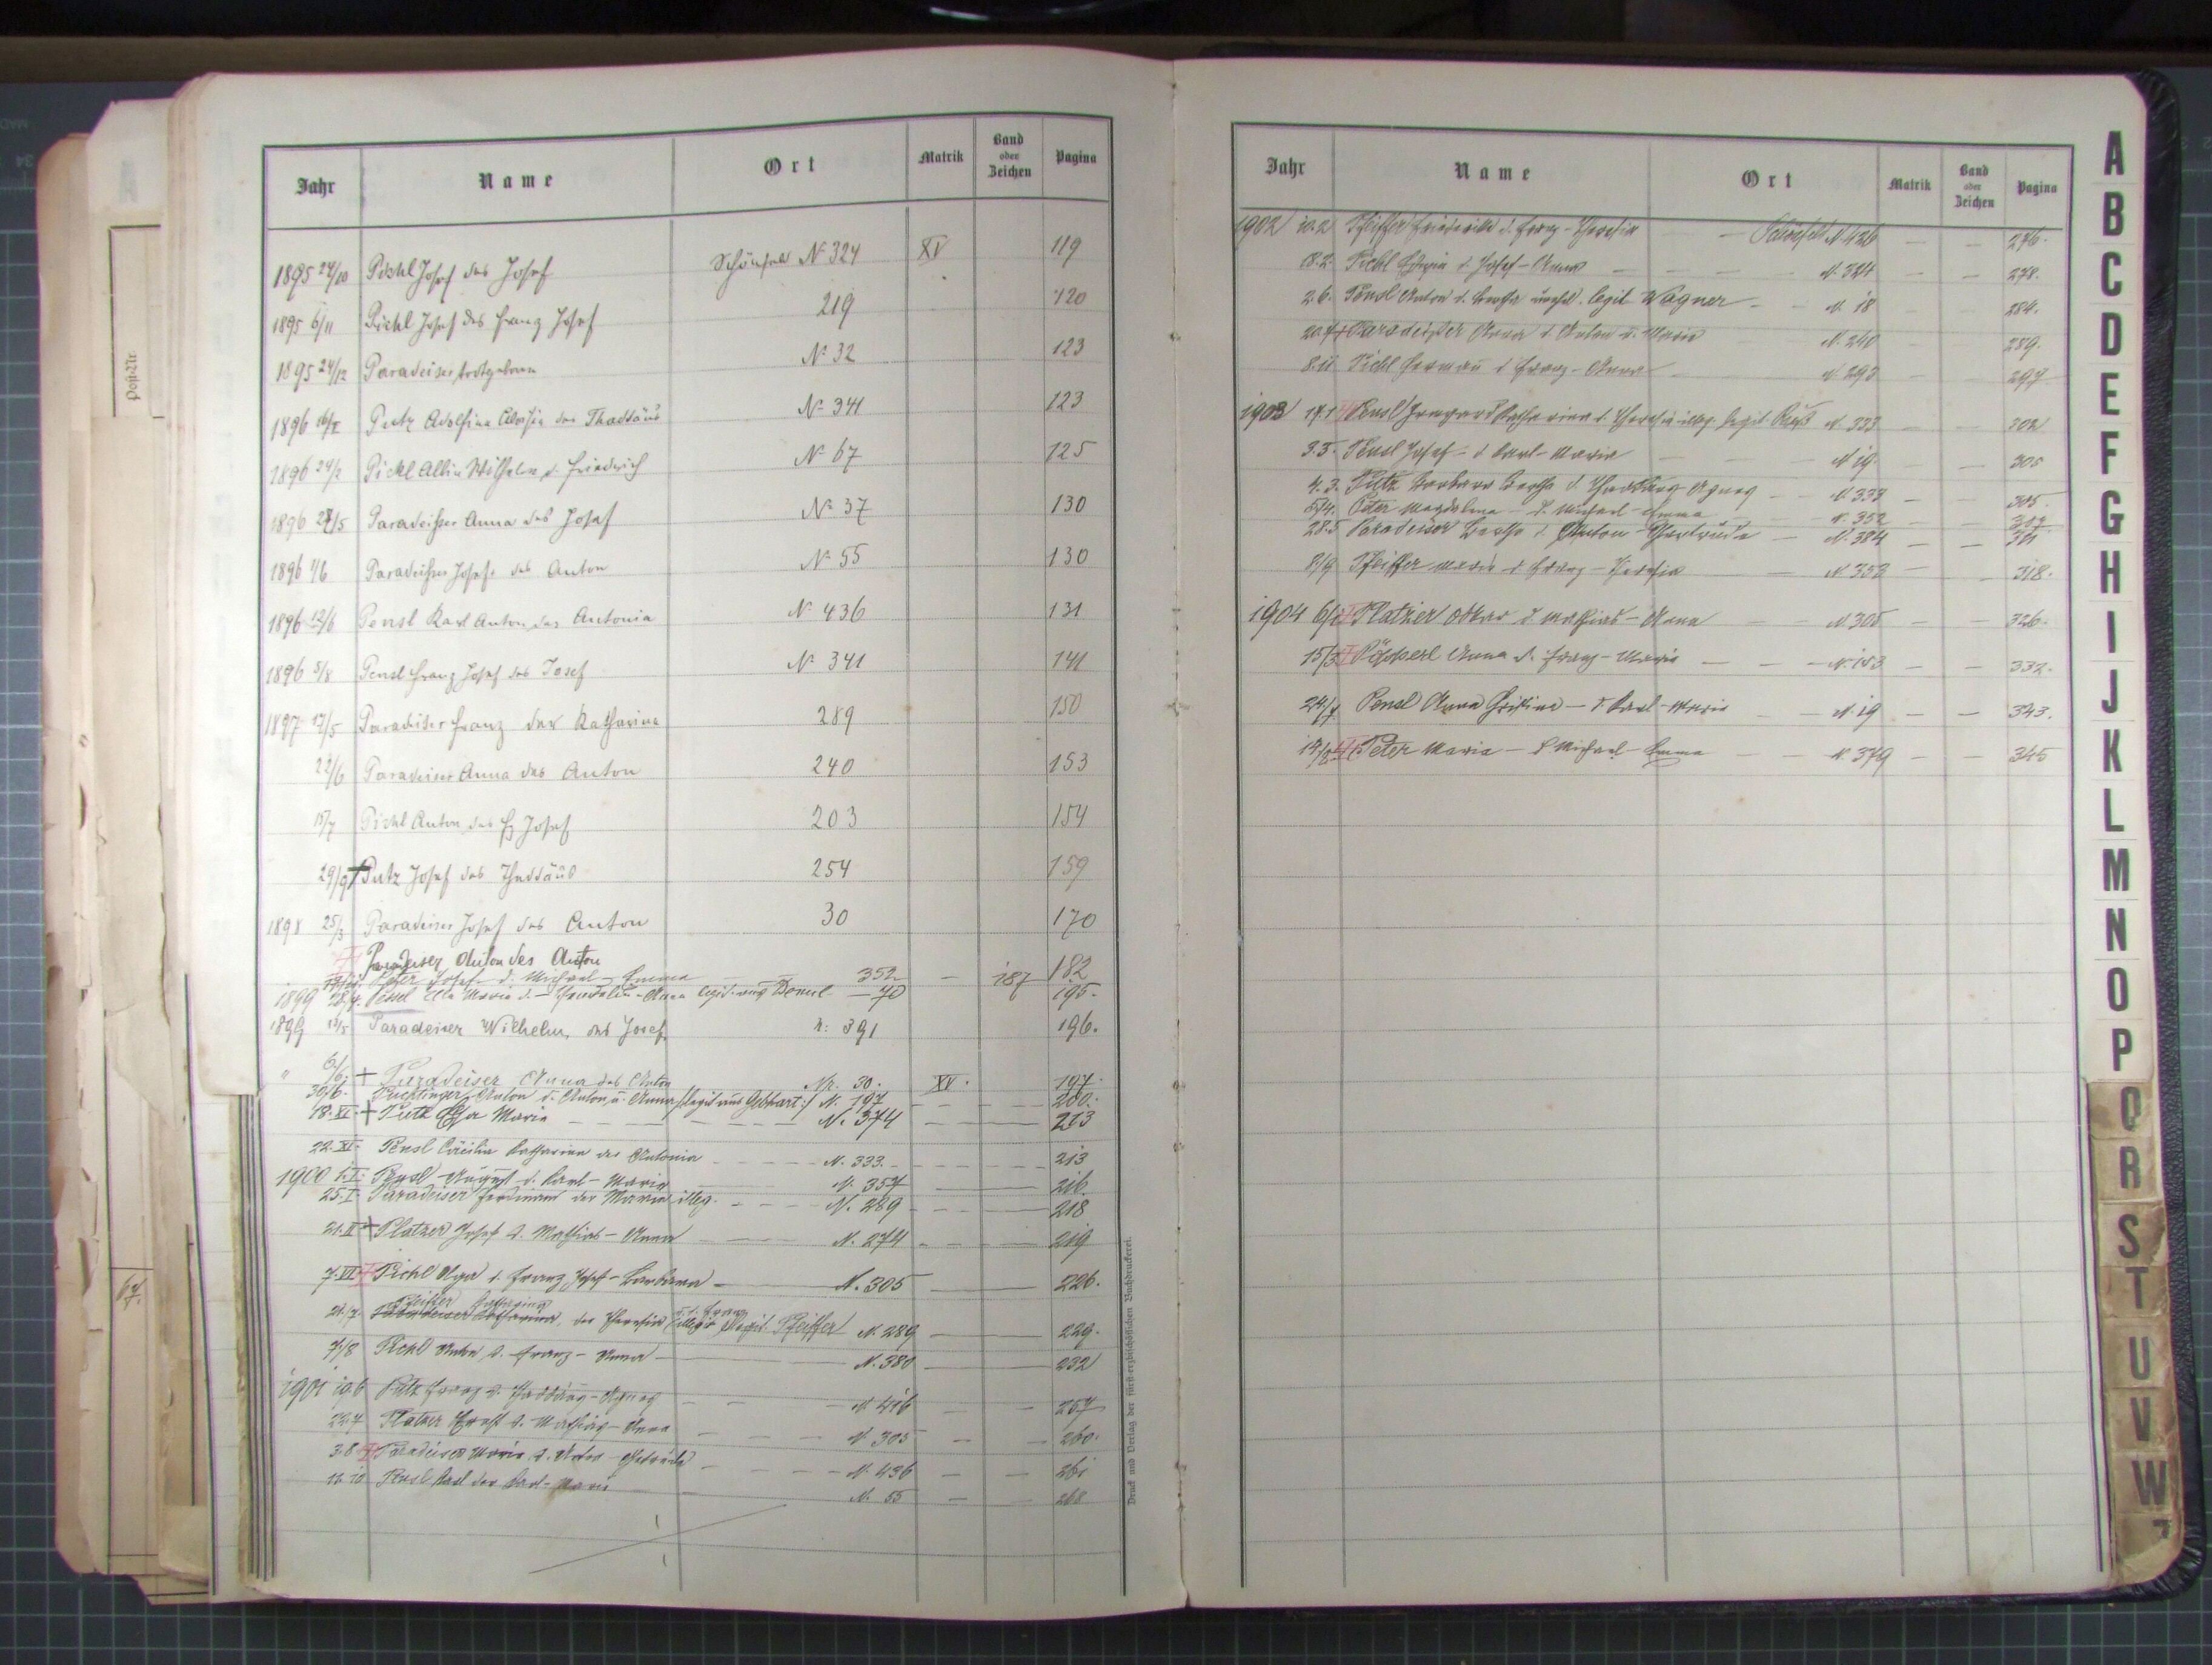 Jahr Name Ort Matrik Band oder Zeichen Pagina
1895 24/10 Pichl Josef des Josef Schönfeld No 324 XV 119
1895 6/11 Pichl Josef des Franz Josef 219 120
1895 24/12 Paradeiser todtgeboren No 32 123
1896 Putz Adolfina Aloisia des Thaddäus No 341 123
1896 24/2 Pickl Albin Wilhelm d. Friedrich No 67 125
1896 27/5 Paradeiser Anna des Josef No 37 130
1896 1/6 Paradeiser Josef des Anton No 55 130
1896 12/6 Pensl Karl Anton der Antonia No 436 131
1896 5/8 Pensl Franz Josef des Josef No 341 141
1897 17/5 Paradeiser Franz der Katharina 289 150
22/6 Paradeiser Anna des Anton 240 153
15/7 Pichl Anton des Fz Josef 203 154
29/9 † Putz Josef des Thaddäus 254 159
1898 25/3 Paradeiser Josef des Anton 30 170
Paradeiser Anton des Anton 182
Peter Josef d. Michael - Emma 352 187
1899 28/4 Ella Maria d. - Anna legit. aus 70 195.
1899 Paradeiser Wilhelm des Josef N: 391 196.
" 6/6. † Paradeiser Anna des Anton Nr. 30. XV. 197.
30/6. Anton d. Anton u. Anna /:legit aus Gebhart:/ N. 197 200.
18.XI † Putz Maria N. 374 213
22.XI. Pensl Cäcilia Katharina der Antonia N. 333. 213
1900 1.I. Pensl August d. Karl - Maria N. 357 216.
25.I. Paradeiser Ferdinand der Maria illeg. N. 289 218
21.II † Platzer Josef d. Mathias - Anna N. 274 219
7.VI. † Pichl Olga d. Franz Josef - Barbara N. 305 226.
Pfeiffer Katharina
21./7. Paradeiser Katharina, der Theresia illegit. legit. Pfeiffer N. 289 229.
7/8 Pichl Anton d. Franz - Anna N. 380 232
1901 10.6 Putz Franz d. Thaddäus - Agnes N. 416 257
22.7 Platzer Ernst d. Mathias - Anna N. 305 260.
3.8 Paradeiser Maria d. Anton - Gertrude N. 436 261
Pensl Karl der Karl - Maria N. 55 268
Druck und Verlag der fürst-erzbischöflichen Buchdruckerei.
Jahr Name Ort Matrik Band oder Zeichen Pagina
1902 10.2 Pfeiffer Friederike d. Franz - Theresia Schönfeld N. 426 276.
18.2. Pichl Edwin d. Josef - Anna N. 324 278.
2.6. Pensl Anton d. Bertha unehel. legit Wagner N. 18 284.
20.7 † Paradeiser Anna d. Anton u. Maria N. 240 289.
8.11 Pichl Hermann d. Franz - Anna N. 293 297
1903 17.1 Pensl Irmgard Katharina d. Theresia illeg. legit. N. 333 302
3.3. Pensl Josef - d. Karl - Maria N. 19. 305
4.3. Putz Barbara Bertha d. Thaddäus Agnes N. 333 305.
5/4. Peter Magdalena - d. Michael - Emma N. 352
28.5 Paradeiser Bertha d. Anton - Gertrude N. 384 311
8/9 Pfeiffer Maria d. Franz - Theresia N. 353 318.
1904 Platzer Oskar d. Mathias - Anna N. 305 326.
15/3 Pöpperl Anna d. Franz - Maria N. 153 332.
24/7 Pensl Anna Christina - d. Karl - Maria N. 19 343.
Peter Maria - d. Michael - Emma N. 379 345
A
B
C
D
E
F
G
H
I
J
K
L
M
N
O
P
Q
R
S
T
U
V
W
Post-Nr.